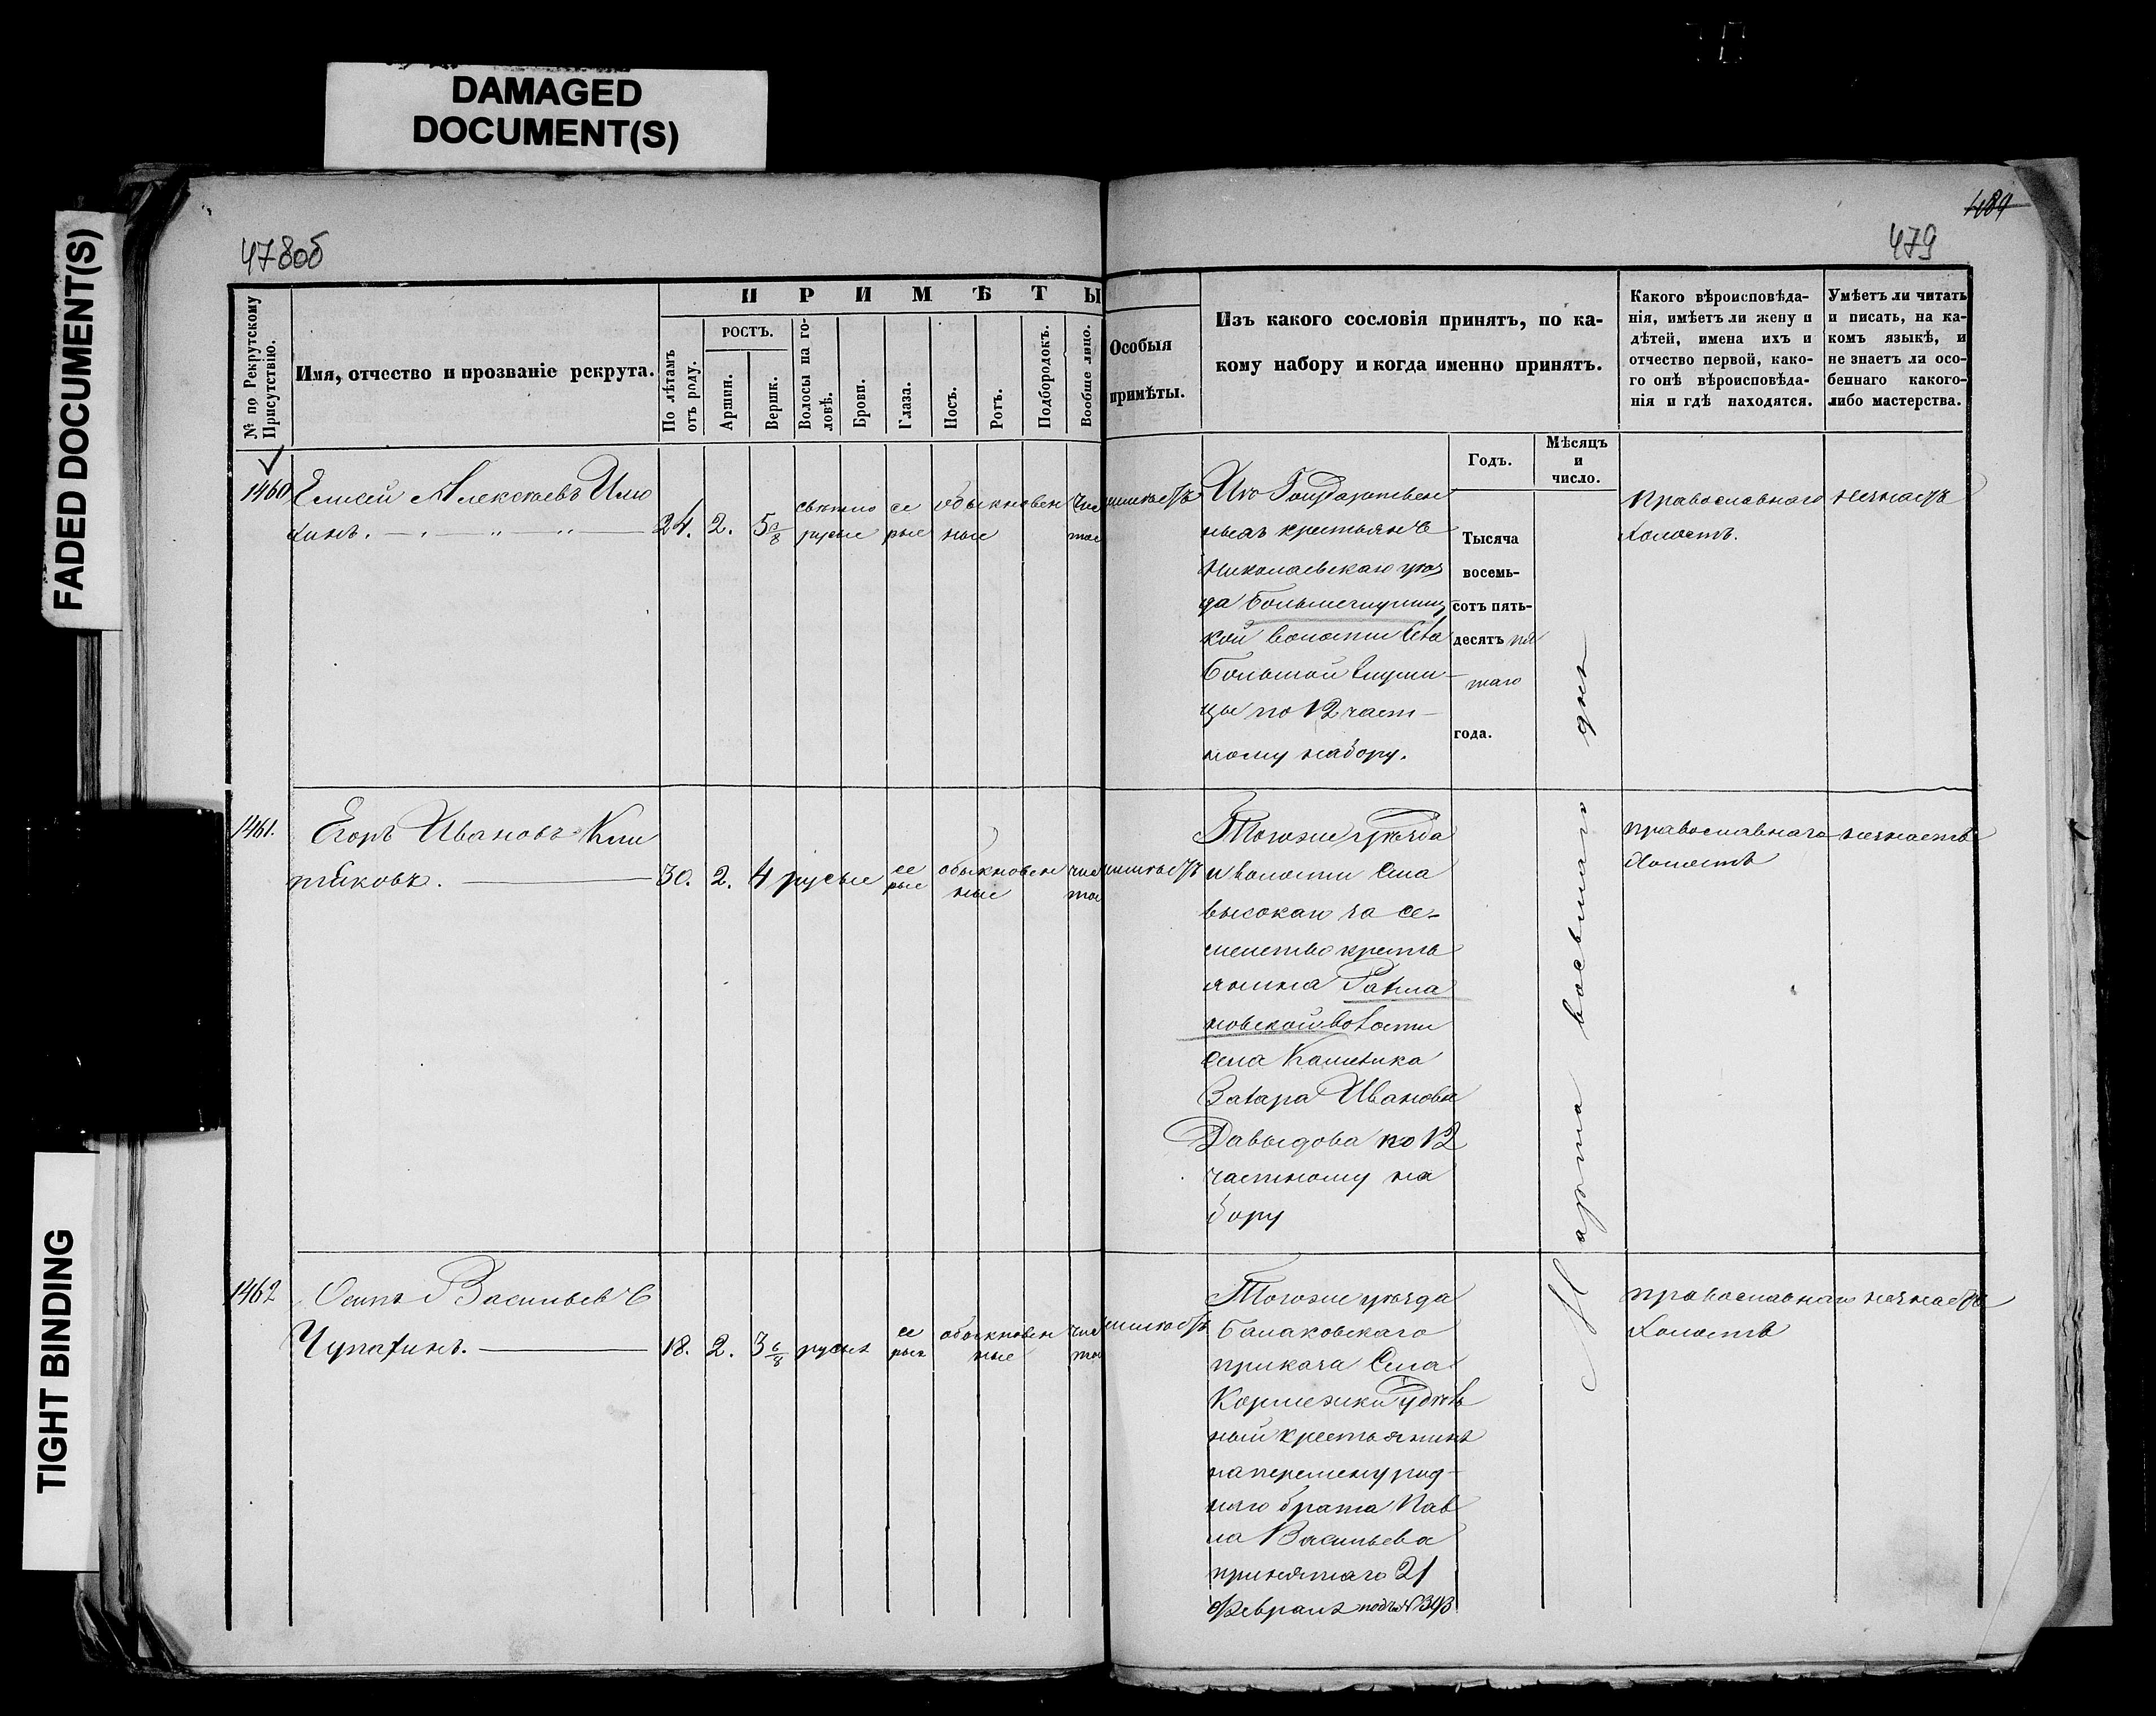 DAMAGED
DOCUMENT(S)
FADED DOCUMENT(S)
TIGHT BINDING
478об
489
479
№ по Рекрутскому
Присутствію.
Имя, отчество и прозваніе рекрута.
ПРИМѢТЫ
По лѣтамъ
отъ роду.
РОСТЪ.
Аршин.
Вершк.
Волосы на го-
ловѣ.
Брови.
Глаза.
Носъ.
Ротъ.
Подбородокъ.
Вообще лицо.
Особыя
примѣты.
Изъ какого сословія принятъ, по ка-
кому набору и когда именно принятъ.
Годъ.
Мѣсяцъ
и
число.
Какого вѣроисповѣда-
нія, имѣетъ ли жену и
дѣтей, имена ихъ и
отчество первой, како-
го онѣ вѣроисповѣда-
нія и гдѣ находятся.
Умѣетъ ли читать
и писать, на ка-
комъ языкѣ, и
не знаетъ ли осо-
беннаго какого-
либо мастерства.
1460
Елисей Алексѣевъ Илю
хинъ.
24. 2. 5
свѣтло
русые
се
рые
обыкновен
ные
чис
тое
Изъ Государствен
ныхъ крестьянъ
Николаевскаго уѣз
да
кой волости Села
Большой
цы по 12 част-
ному набору.
Тысяча
восемь-
сотъ пять-
десятъ пя
таго
года.
Марта восьмаго дня
Православнаго
холостъ.
незнаетъ
1461.
Егоръ Ивановъ
30. 2. 4 русые
се
рые
обыкновен
ные
чис
тое
Тогоже уѣзда
и волости Села
высокаго за се-
мейство кресть
янина
новской волости
села Каменика
Захара Иванова
Давыдова по 12
частному на
бору
православнаго
холостъ
незнаетъ
1462
Осипъ Васильевъ
18. 2. 3 6/8 русые
се
рые
обыкновен
ные
чис
тое
Тогоже уѣзда
Балаковскаго
приказа Села
Кормежки
ный крестьянинъ
на перемену род-
наго брата Пав
ла Васильева
принятаго 21
Февраля подъ № 343
православнаго
холостъ
незнаетъ